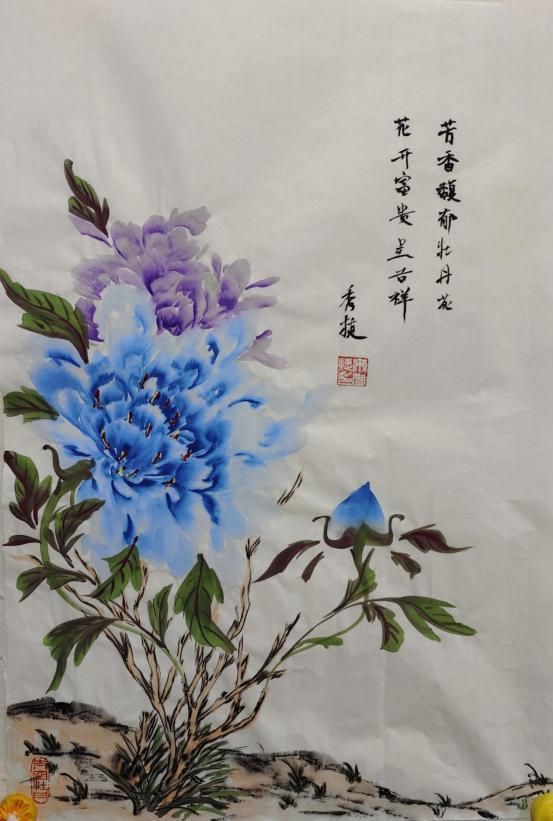 芳香馥郁牡丹花
花开富贵呈吉祥
秀捷